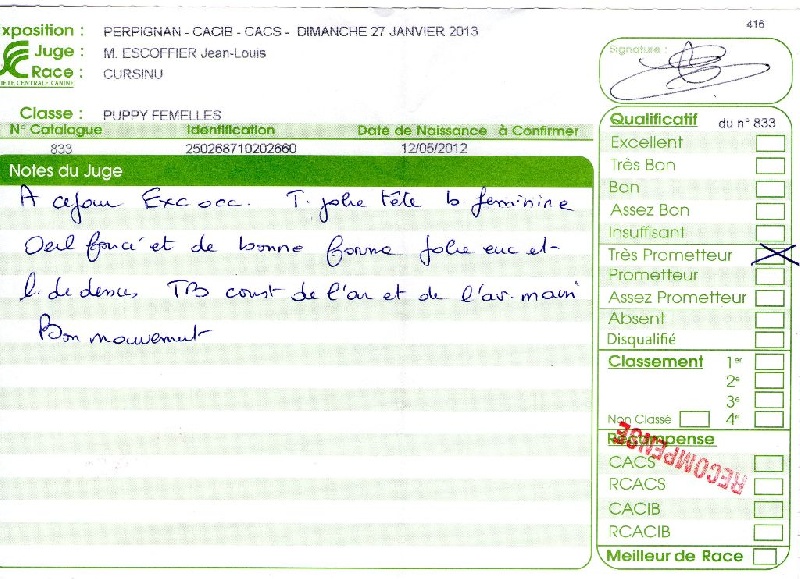 416
xposition : PERPIGNAN - CACIB - CACS - DIMANCHE 27 JANVIER 2013
Juge : M. ESCOFFIER Jean-Louis
Race : CURSINU
Classe : PUPPY FEMELLES
N° Catalogue Identification Date de Naissance à Confirmer
833 250268710202660 12/05/2012
Notes du Juge
A ce jour Exc occ. T. jolie tête b feminine
Oeil foncé et de bonne forme jolie enc et
l. de dessus, TB const de l'ar et de l'av. main
Bon mouvement
Signature :
Qualificatif du n° 833
Excellent
Très Bon
Bon
Assez Bon
Insuffisant
Très Prometteur
Prometteur
Assez Prometteur
Absent
Disqualifié
Classement 1er
2e
3e
Non Classé 4e
Récompense
RECOMPENSE
CACS
RCACS
CACIB
RCACIB
Meilleur de Race